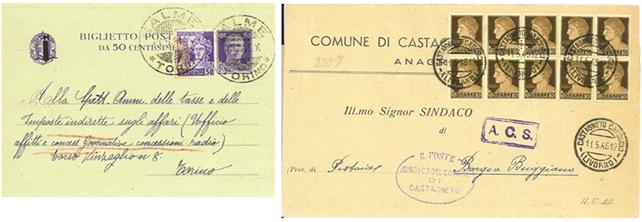 BIGLIETTO POS
DA 50 CENTESIM
ALME
TORINO
50
Alla Spett. Amm. delle tasse e delle
Imposte indirette sugli affari (Ufficio
affitti e concess. governative - concessioni radio)
Corso Vinzaglio n 8
Torino
COMUNE DI CASTAG
ANAG
Ill.mo Signor SINDACO
A. C. S.
(Prov. di Pistoia)
Borgo a Buggiano
R. POSTE
SINDACO DEL COMUNE
DI
CASTAGNETO
CASTAGNETO CARDUCCI
11.5.45.12
(LIVORNO)
11.5.45